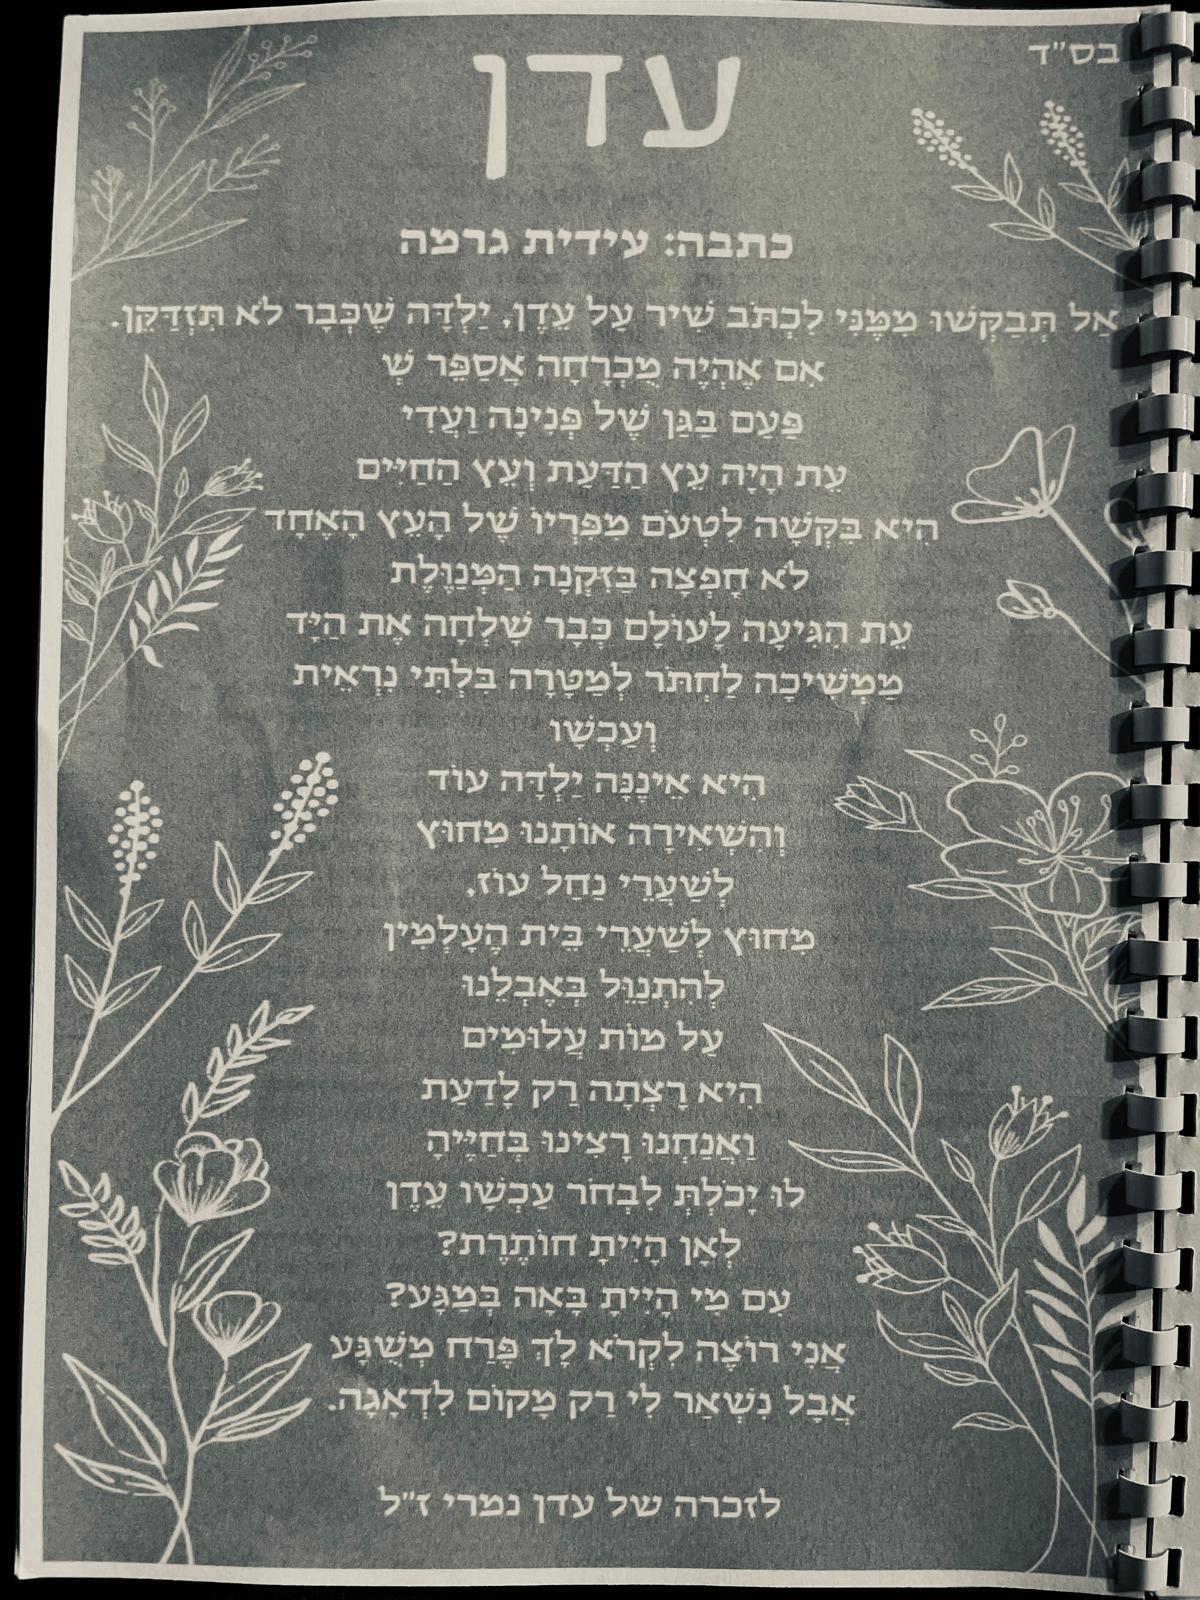 בס"ד
עדן
כתבה: עידית גרמה
אַל תְּבַקְשׁוּ מִמֶּנִּי לִכְתֹּב שִׁיר עַל עֵדֶן, יַלְדָּה שֶׁכְּבָר לֹא תִּזְדַּקֵּן.
אִם אֶהְיֶה מֻכְרָחָה אֲסַפֵּר שֶׁ
פַּעַם בַּגַּן שֶׁל פְּנִינָה וַעֲדִי
עֵת הָיָה עֵץ הַדַּעַת וְעֵץ הַחַיִּים
הִיא בִּקְּשָׁה לִטְעֹם מִפִּרְיוֹ שֶׁל הָעֵץ הָאֶחָד
לֹא חָפְצָה בַּזִּקְנָה הַמְּנַוֶּלֶת
עֵת הִגִּיעָה לָעוֹלָם כְּבָר שָׁלְחָה אֶת הַיָּד
מַמְשִׁיכָה לַחְתֹּר לְמַטָּרָה בִּלְתִּי נִרְאֵית
וְעַכְשָׁו
הִיא אֵינֶנָּה יַלְדָּה עוֹד
וְהִשְׁאִירָה אוֹתָנוּ מִחוּץ
לְשַׁעֲרֵי נַחַל עוֹז,
מִחוּץ לְשַׁעֲרֵי בֵּית הָעָלְמִין
לְהִתְנַוֵּל בְּאֶבְלֵנוּ
עַל מוֹת עֲלוּמִים
הִיא רָצְתָה רַק לָדַעַת
וַאֲנַחְנוּ רָצִינוּ בְּחַיֶּיהָ
לוּ יָכֹלְתְּ לִבְחֹר עַכְשָׁו עֵדֶן
לְאָן הָיִית חוֹתֶרֶת?
עִם מִי הָיִית בָּאָה בְּמַגָּע?
אֲנִי רוֹצָה לִקְרֹא לָךְ פֶּרַח מְשֻׁגָּע
אֲבָל נִשְׁאַר לִי רַק מָקוֹם לִדְאָגָה.
לזכרה של עדן נמרי ז"ל